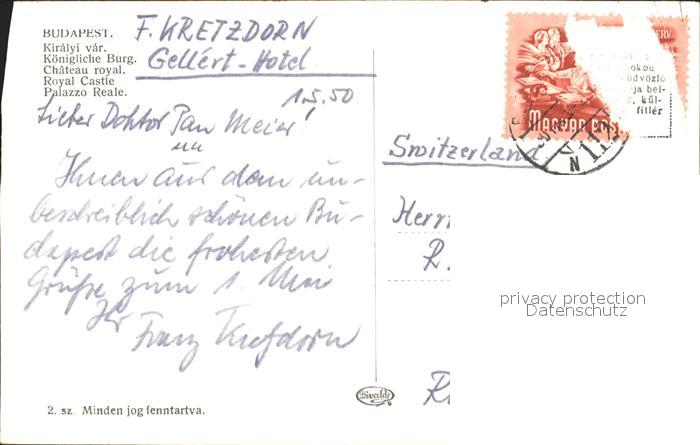 BUDAPEST.
Királyi vár.
Königliche Burg.
Château royal.
Royal Castle
Palazzo Reale.
F. KRETZDORN
Gellért-Hotel
1.5.50
Lieber Doktor Pan Meier!
Ihnen aus dem un-
beschreiblich schönen Bu-
dapest die frohesten
Grüße zum 1. Mai
Ihr
Franz Kretzdorn
2. sz. Minden jog fenntartva.
Divald
MAGYAR POS
üdvözlő
ja bel-
kül-
fillér
Switzerland
Herrn
R.
privacy protection
Datenschutz